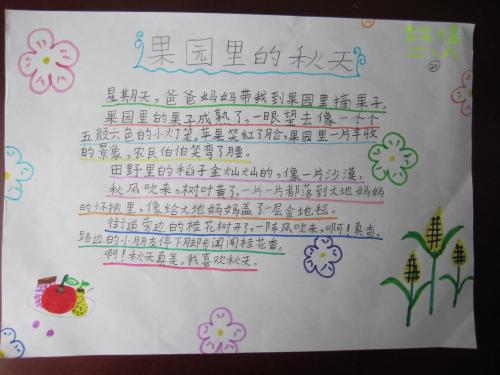 果园里的秋天
星期天,爸爸妈妈带我到果园里摘果子。
果园里的果子成熟了,一眼望去像一个个
五颜六色的小灯笼。苹果笑红了脸,果园里一片丰收
的景象,农民伯伯笑弯了腰。
田野里的稻子金灿灿的,像一片沙漠。
秋风吹来,树叶黄了,一片一片都落到大地妈妈
的怀抱里,像给大地妈妈盖了一层金地毯。
街道旁边的桂花树开了,一阵风吹来,啊!真香。
路边的小朋友停下脚步闻闻桂花香。
啊!秋天真美。我喜欢秋天。